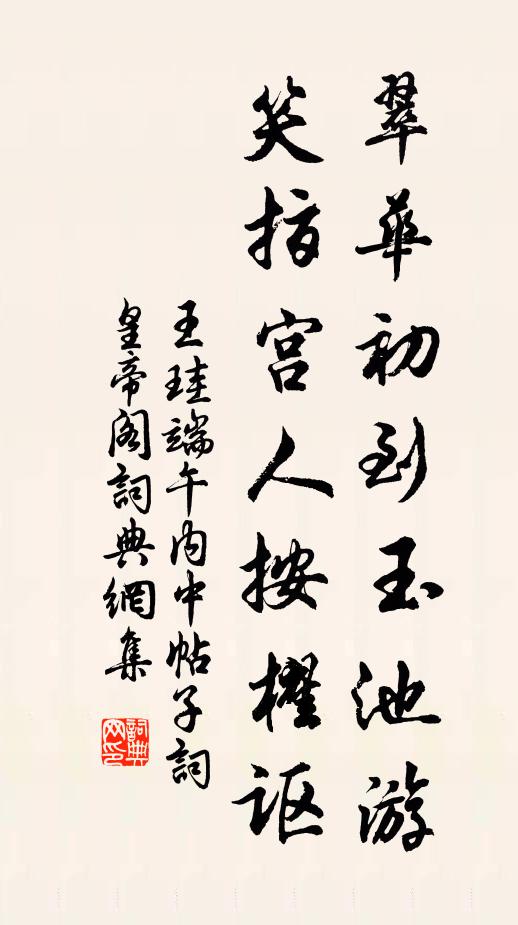 翠華初到玉池游
笑指宮人按櫂謳
王珪端午内中帖子詞
皇帝阁詞典網集
詞典網印